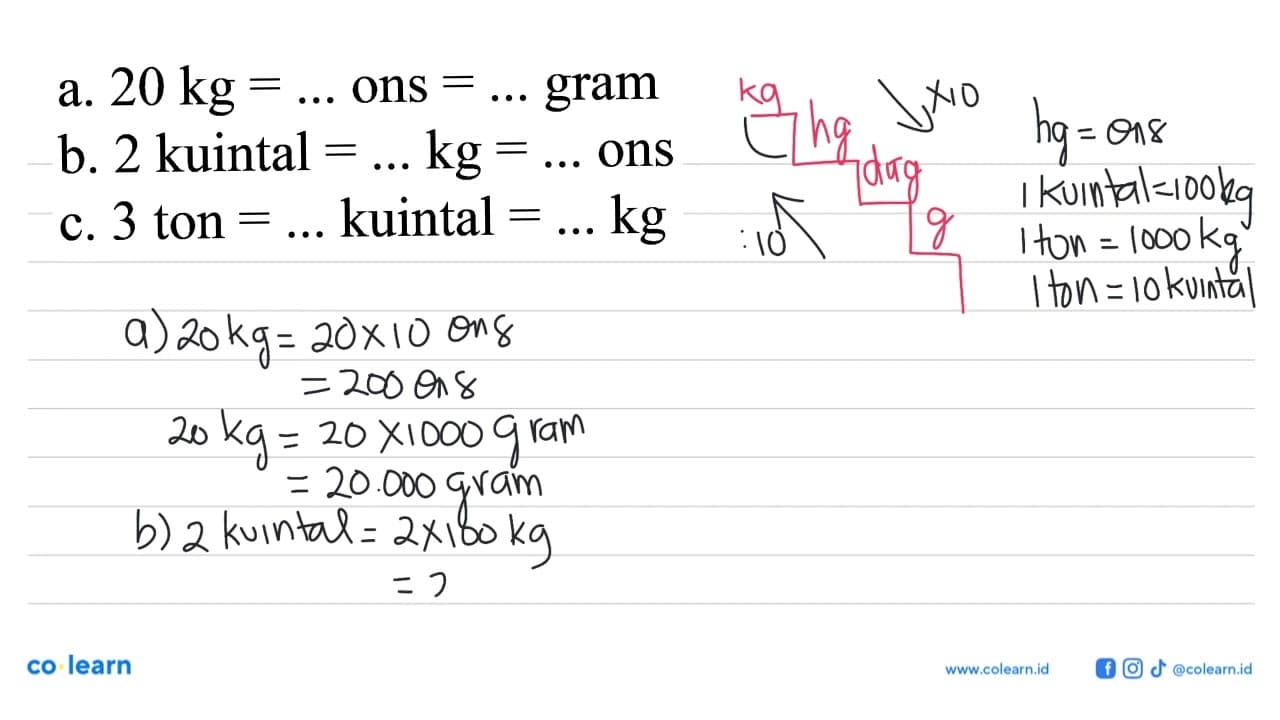 a. 20 kg = ... ons = ... gram
b. 2 kuintal = ... kg = ... ons
c. 3 ton = ... kuintal = ... kg
kg
hg
dag
g
x10
:10
hg = ons
1 kuintal = 100 kg
1 ton = 1000 kg
1 ton = 10 kuintal
a) 20 kg = 20 x 10 ons
= 200 ons
20 kg = 20 x 1000 gram
= 20.000 gram
b) 2 kuintal = 2 x 100 kg
=
co·learn
www.colearn.id @colearn.id